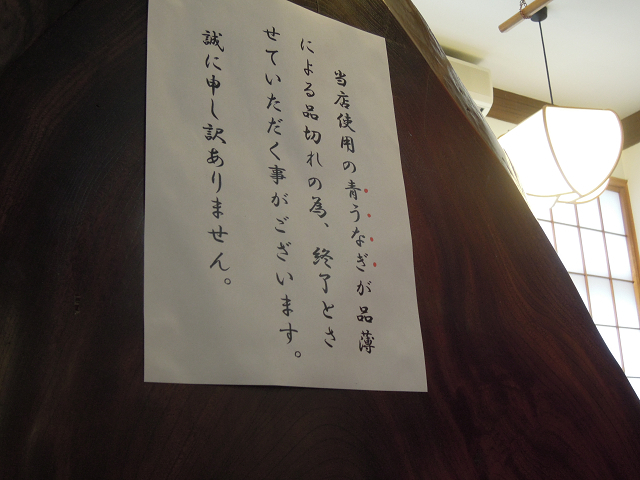 当店使用の青うなぎが品薄
による品切れの為、終了とさ
せていただく事がございます。
誠に申し訳ありません。